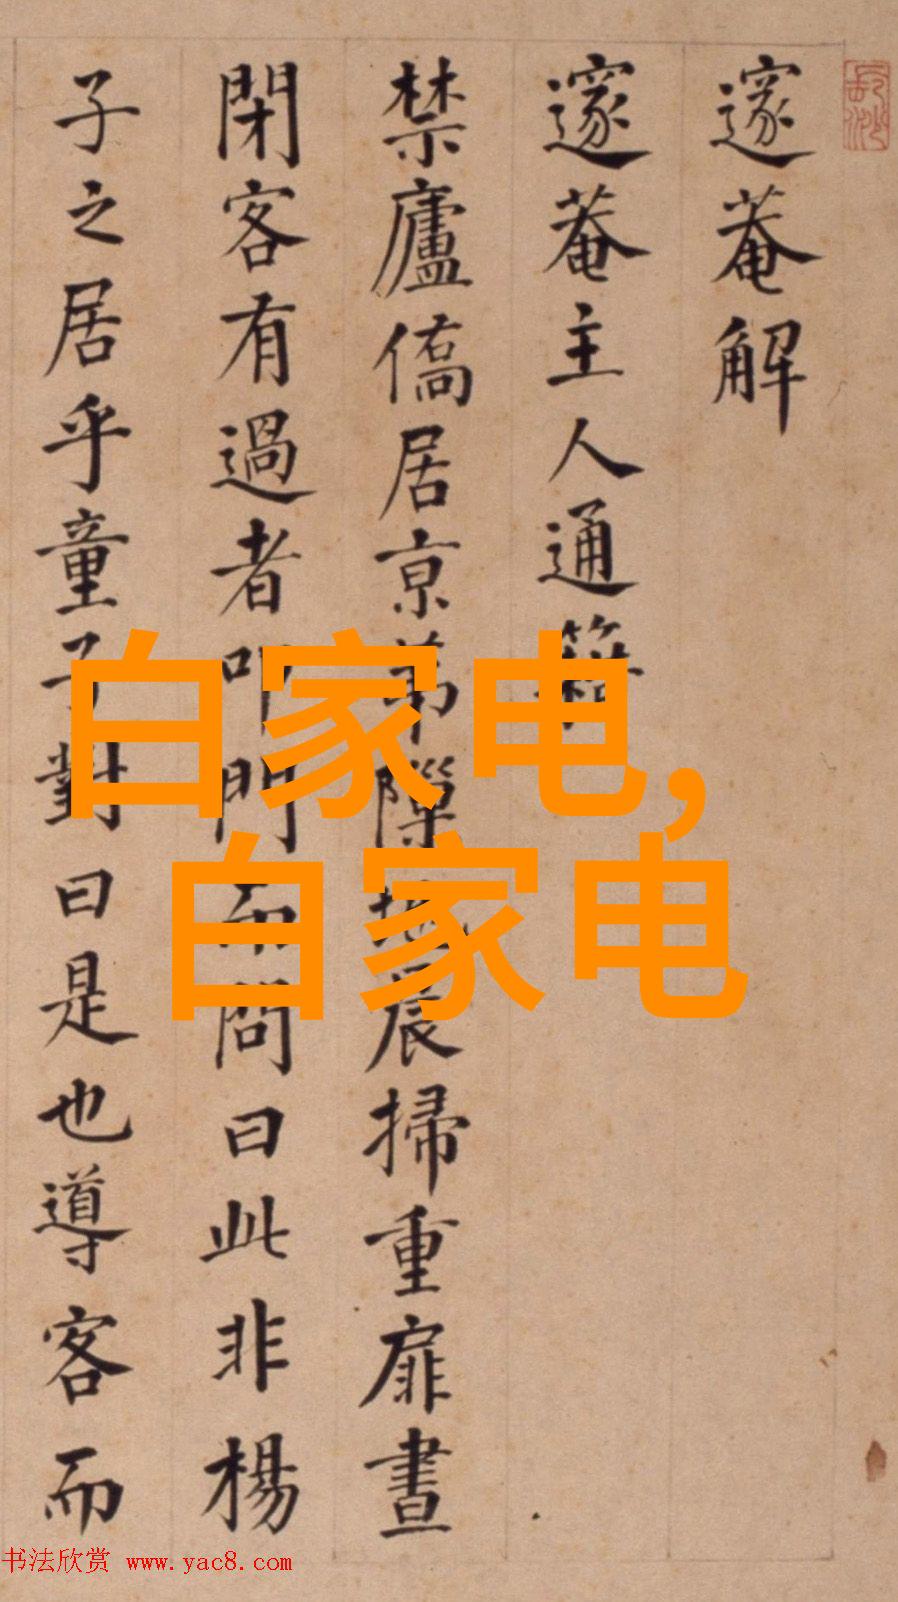 邃菴解
邃菴主人通籍
禁廬僑居京苐隙地晨掃重扉晝
閉客有過者叩門而問曰此非楊
子之居乎童子對曰是也導客而
白家电,
白家电
书法欣赏 www.yac8.com